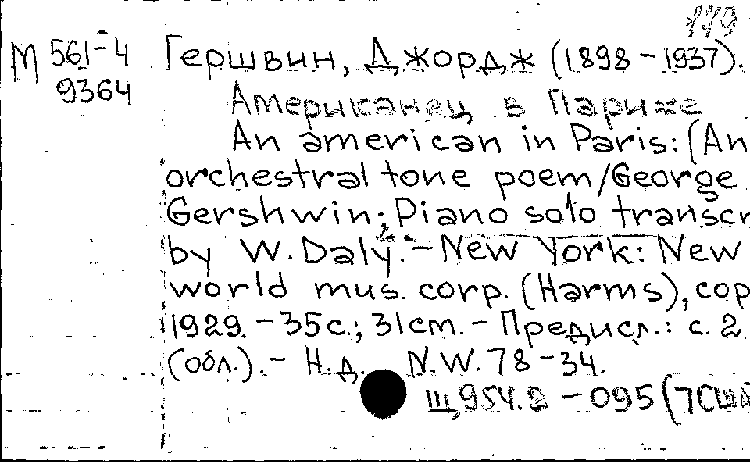 119
М 561-4 Гершвин, Джордж (1898-1937).
9364
Американец в Париже
An american in Paris: (An
orchestral tone poem/George
Gershwin; Piano solo transcr
by W. Daly. - New York: New
world mus. corp. (Harms), cop
1929. - 35с.; 31см. - Предисл.: с. 2
(обл.). - Н.д. N.W. 78-34.
Щ954.2 - 095(7США